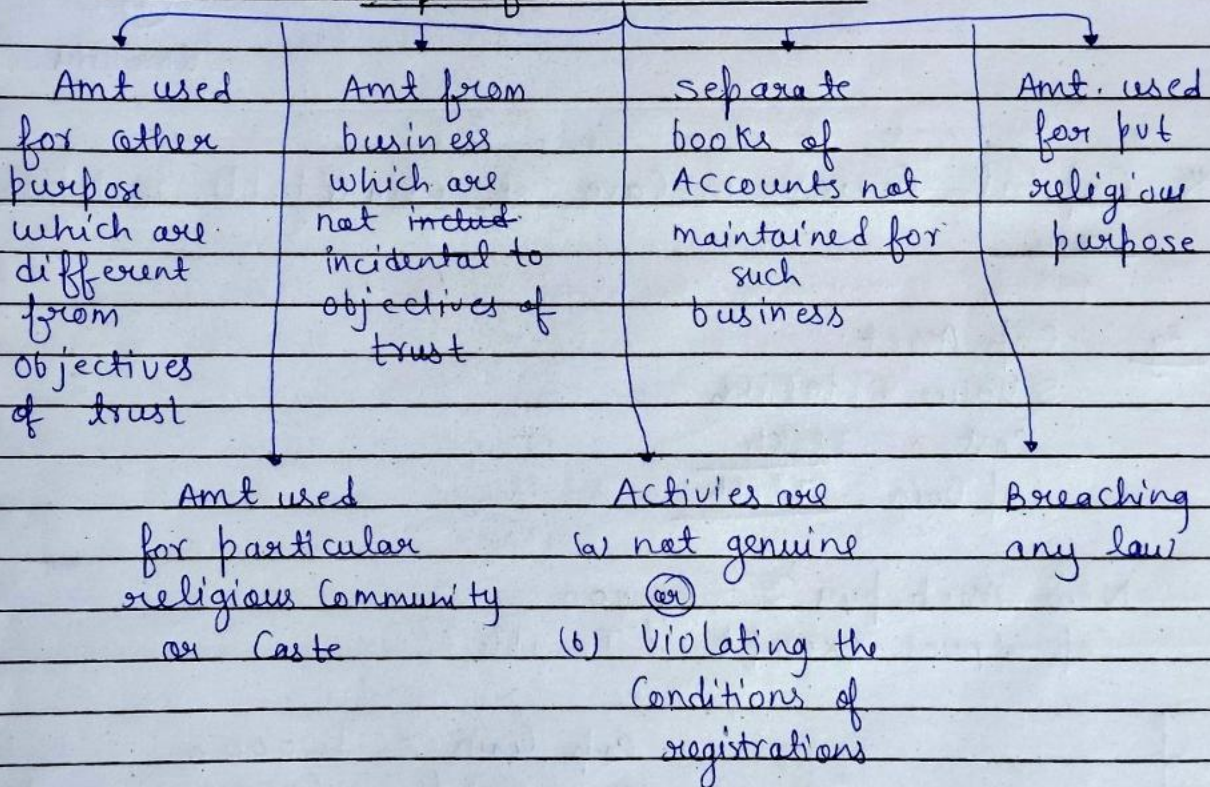 Amt used
for other
purpose
which are
different
from
objectives
of trust
Amt from
business
which are
not includ
incidental to
objectives of
trust
separate
books of
Accounts not
maintained for
such
business
Amt. used
for pvt
religious
purpose
Amt used
for particular
religious Community
or Caste
Activies are
(a) not genuine
(or)
(b) Violating the
Conditions of
registrations
Breaching
any law